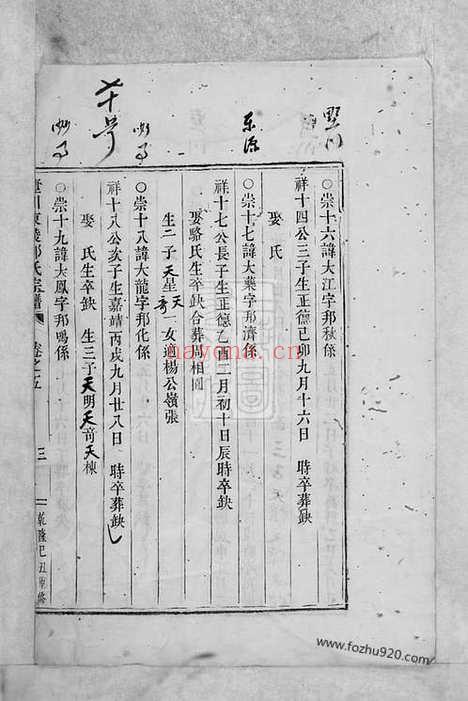 墅川
东源
〇崇十六諱大江字邦秋係
祥十四公三子生正德己卯九月十六日 時卒葬缺
娶 氏
〇崇十七諱大藥字邦濟係
祥十七公長子生正德乙酉二月初十日辰時卒缺
娶駱氏生卒缺合葬同相園
生二子天星天奇一女適楊公嶺張
〇崇十八諱大龍字邦化係
祥十八公次子生嘉靖丙戌九月廿八日 時卒葬缺
娶 氏生卒缺 生三子天明天奇天棟
〇崇十九諱大鳳字邦鳴係
氏宗譜 卷之五 三 乾隆己丑重修
nayona.cn
www.fozhu920.com